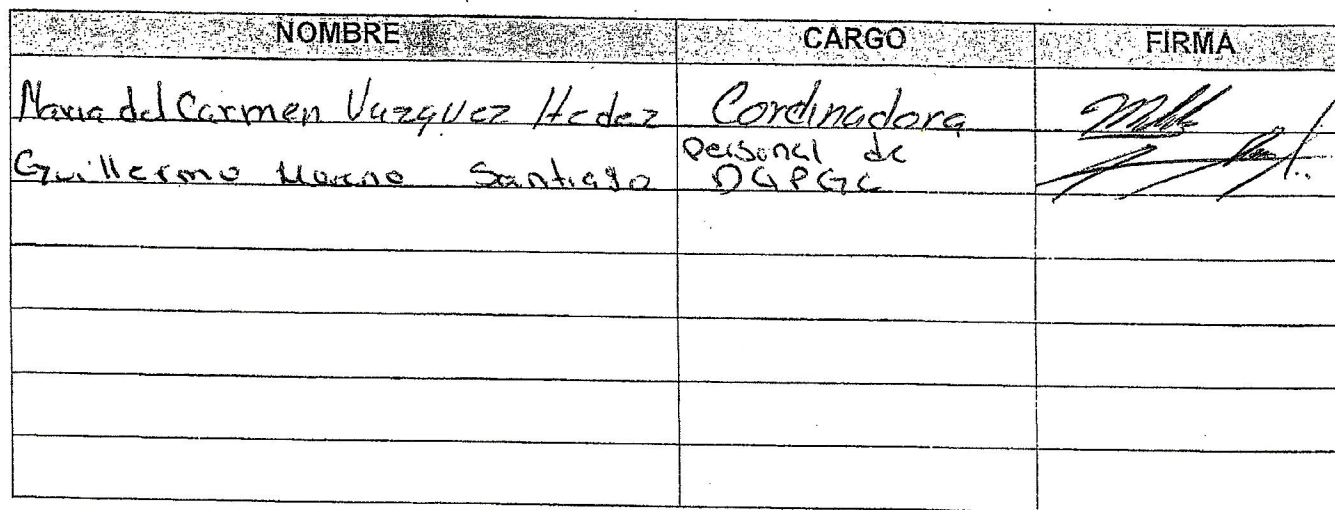 NOMBRE CARGO FIRMA
Maria del Carmen Vazquez Hedez Cordinadora
Guillermo Moreno Santiago Personal de
DGPGC